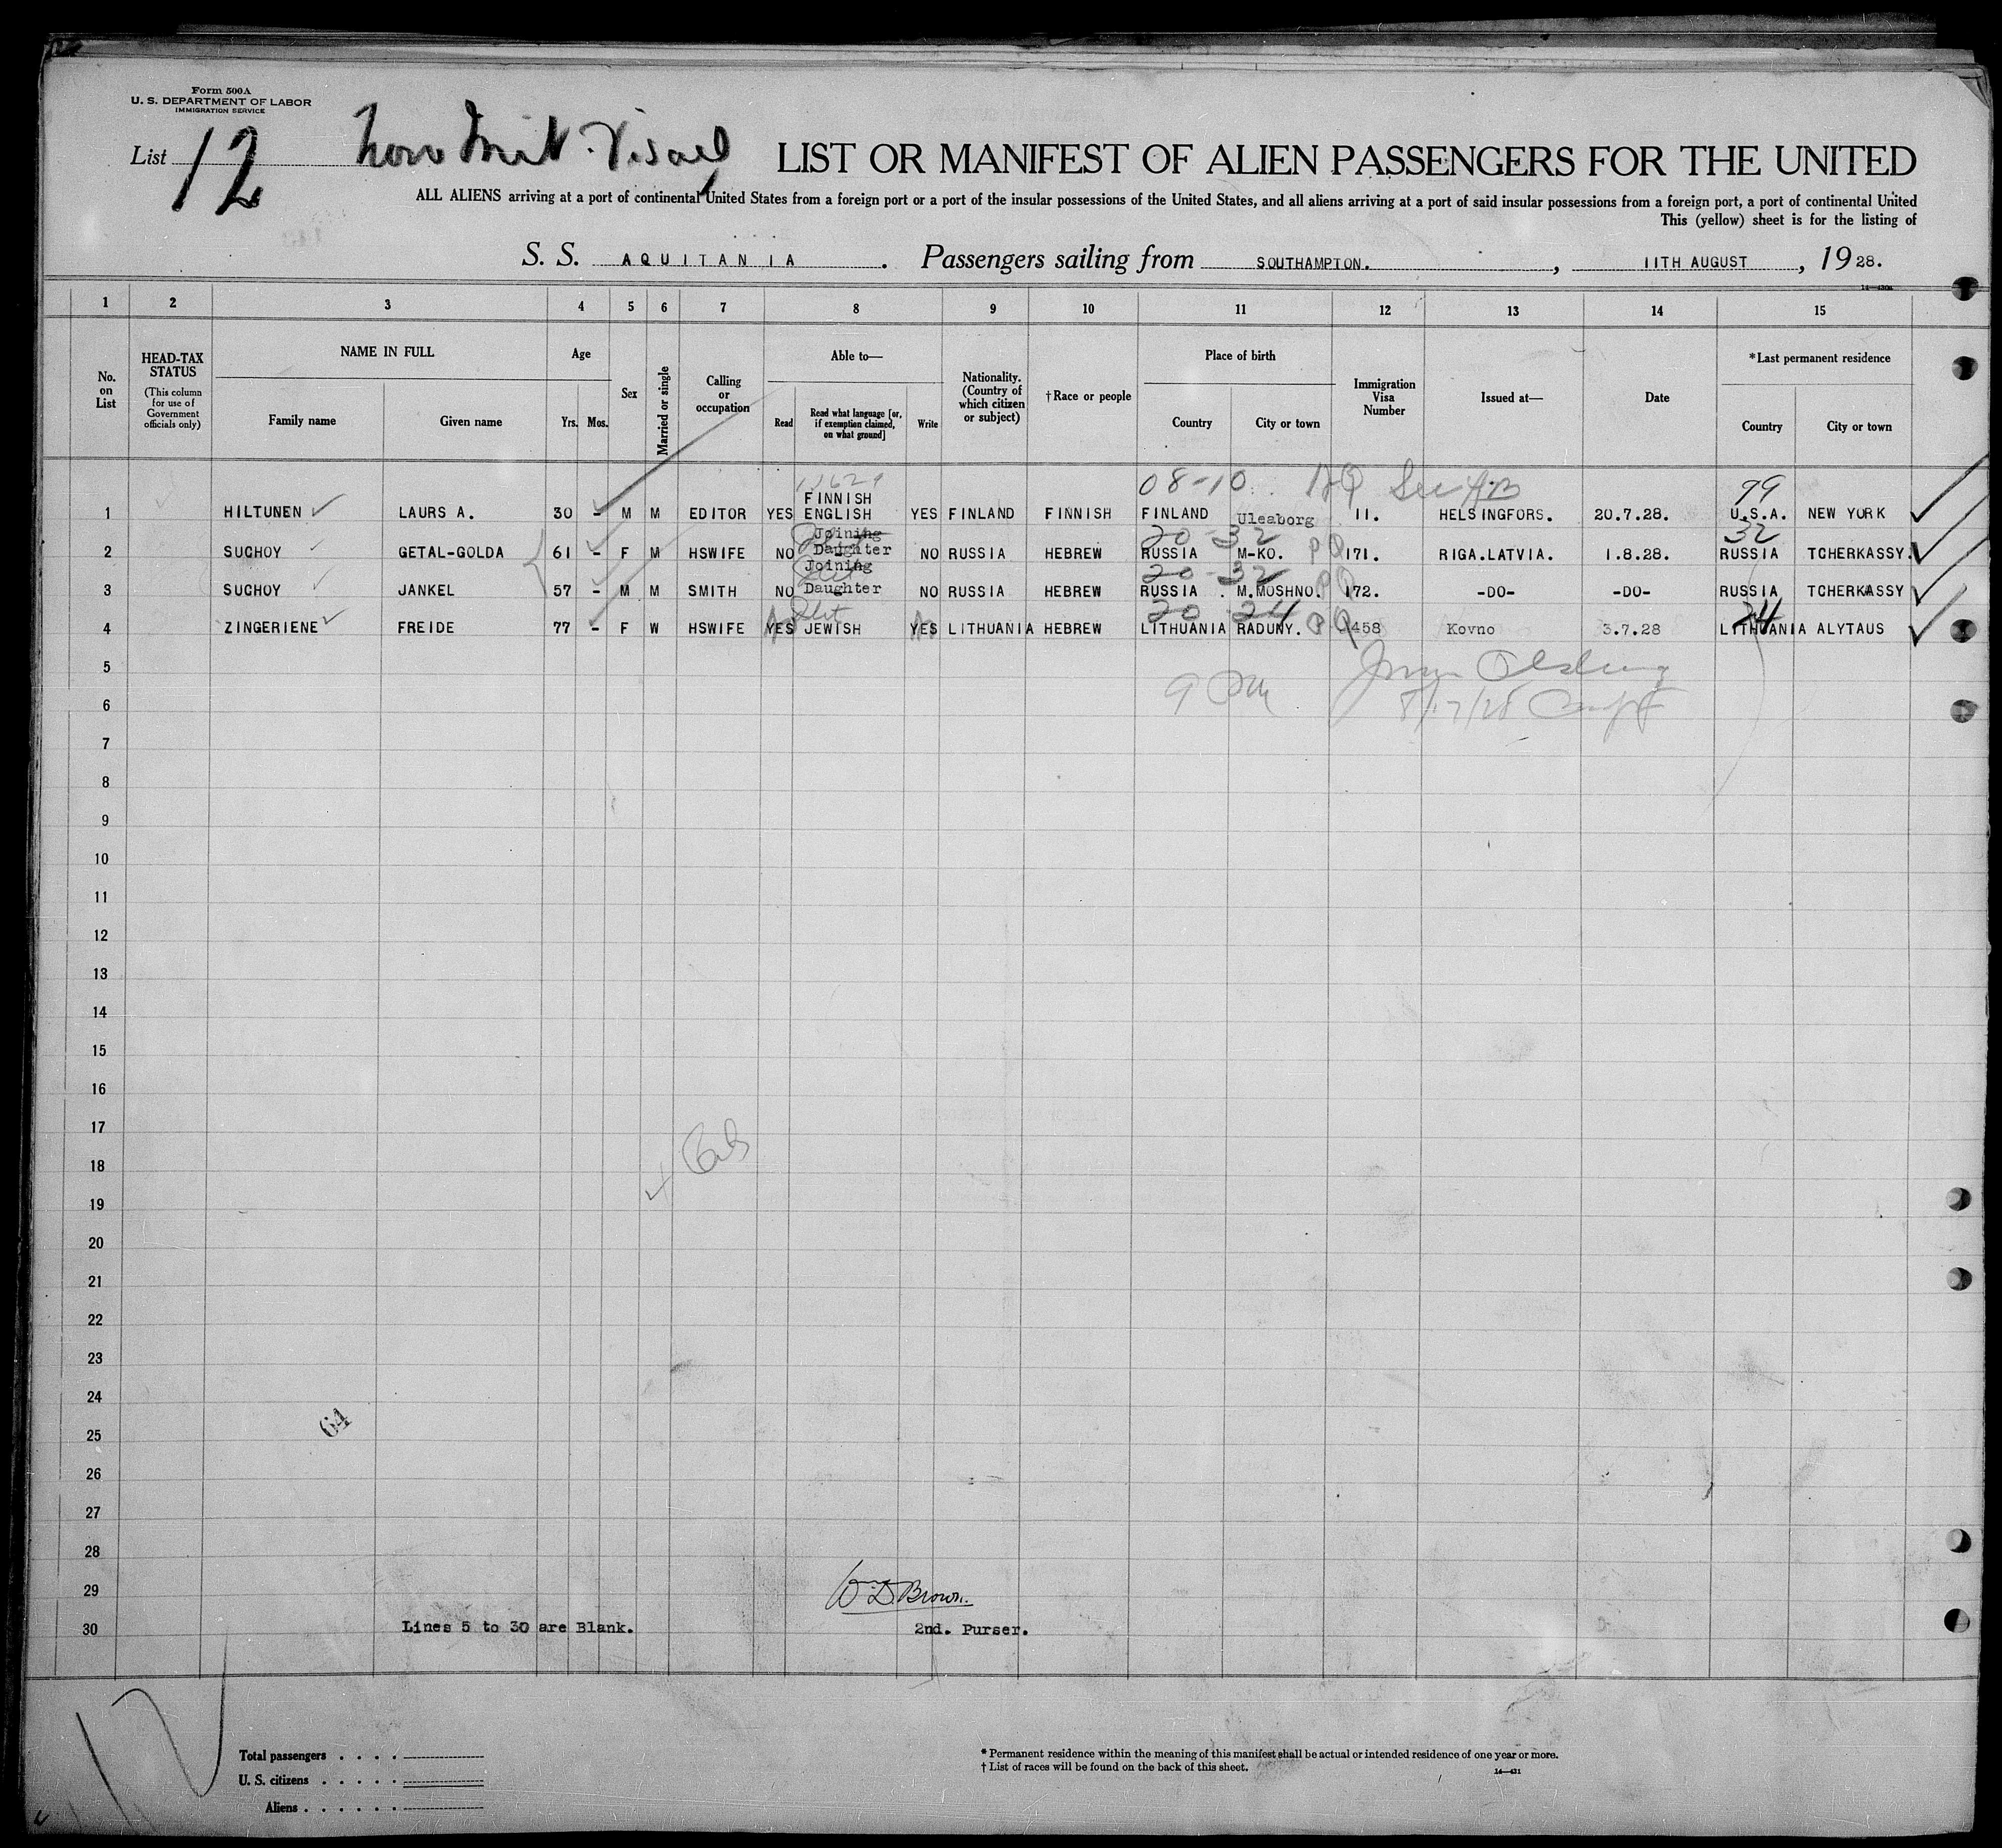 Form 500A
U. S. DEPARTMENT OF LABOR
IMMIGRATION SERVICE
List 12
LIST OR MANIFEST OF ALIEN PASSENGERS FOR THE UNITED
ALL ALIENS arriving at a port of continental United States from a foreign port or a port of the insular possessions of the United States, and all aliens arriving at a port of said insular possessions from a foreign port, a port of continental United
This (yellow) sheet is for the listing of
S. S. AQUITANIA. Passengers sailing from SOUTHAMPTON., 11TH AUGUST, 1928.
1 2 3 4 5 6 7 8 9 10 11 12 13 14 15
No. on List
HEAD-TAX STATUS
(This column for use of Government officials only)
NAME IN FULL
Family name Given name
Age
Yrs. Mos.
Sex
Married or single
Calling or occupation
Able to—
Read
Read what language [or, if exemption claimed, on what ground]
Write
Nationality. (Country of which citizen or subject)
†Race or people
Place of birth
Country City or town
Immigration Visa Number
Issued at—
Date
*Last permanent residence
Country City or town
08-10 99
FINNISH
1 HILTUNEN LAURS A. 30 - M M EDITOR YES ENGLISH YES FINLAND FINNISH FINLAND Uleaborg 11. HELSINGFORS. 20.7.28. U.S.A. NEW YORK
Joining 20-32 32
2 SUCHOY GETAL-GOLDA 61 - F M HSWIFE NO Daughter NO RUSSIA HEBREW RUSSIA M-KO. PQ 171. RIGA.LATVIA. 1.8.28. RUSSIA TCHERKASSY.
Joining 20-32
3 SUCHOY JANKEL 57 - M M SMITH NO Daughter NO RUSSIA HEBREW RUSSIA. M.MOSHNO. PQ 172. -DO- -DO- RUSSIA TCHERKASSY
20-24 24
4 ZINGERIENE FREIDE 77 - F W HSWIFE YES JEWISH YES LITHUANIA HEBREW LITHUANIA RADUNY. PQ 458 Kovno 3.7.28 LITHUANIA ALYTAUS
5
6
7
8
9
10
11
12
13
14
15
16
17
18
19
20
21
22
23
24
64
25
26
27
28
29 W D. Brown.
30 Lines 5 to 30 are Blank. 2nd. Purser.
Total passengers . . . .
U. S. citizens . . . . .
Aliens . . . . . .
* Permanent residence within the meaning of this manifest shall be actual or intended residence of one year or more.
† List of races will be found on the back of this sheet.